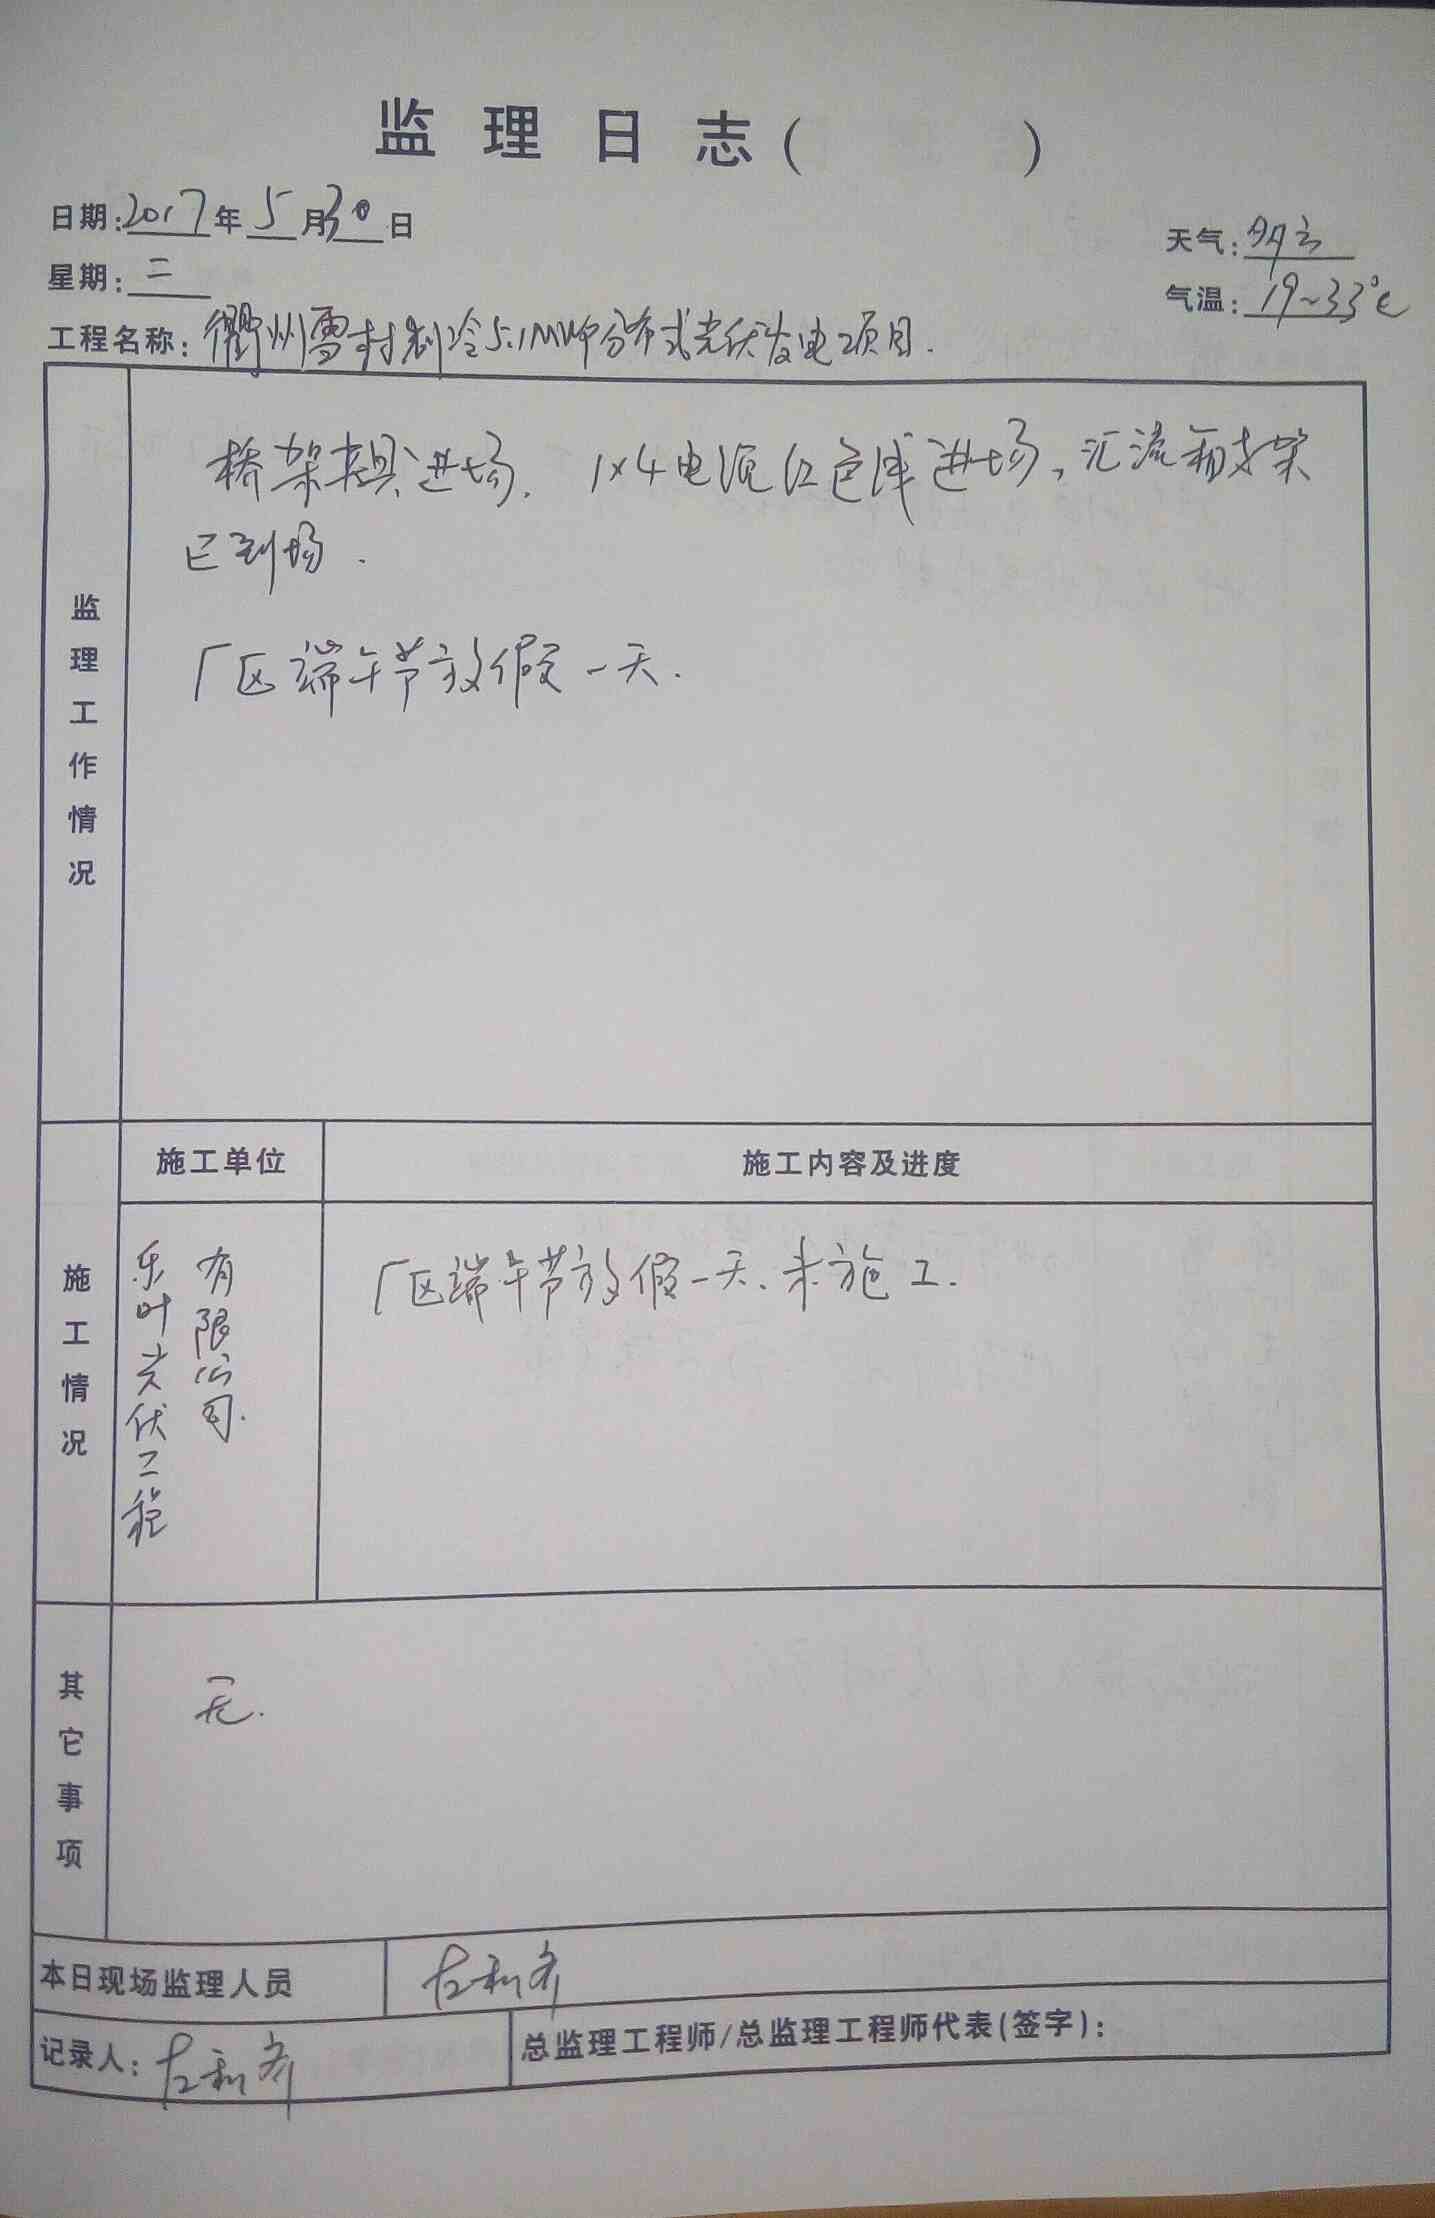 监理日志（ ）
日期：2017年5月30日
天气：多云
星期：二
气温：19~33℃
工程名称：衢州雪村制冷5.1MWP分布式光伏发电项目.
监理工作情况
桥架夹具进场. 1×4电缆红色线进场,汇流箱支架
已到场.
厂区端午节放假一天.
施工单位
施工内容及进度
施工情况
乐叶光伏工程
有限公司.
厂区端午节放假一天、未施工.
其它事项
无.
本日现场监理人员
左利
记录人：左利
总监理工程师/总监理工程师代表（签字）：